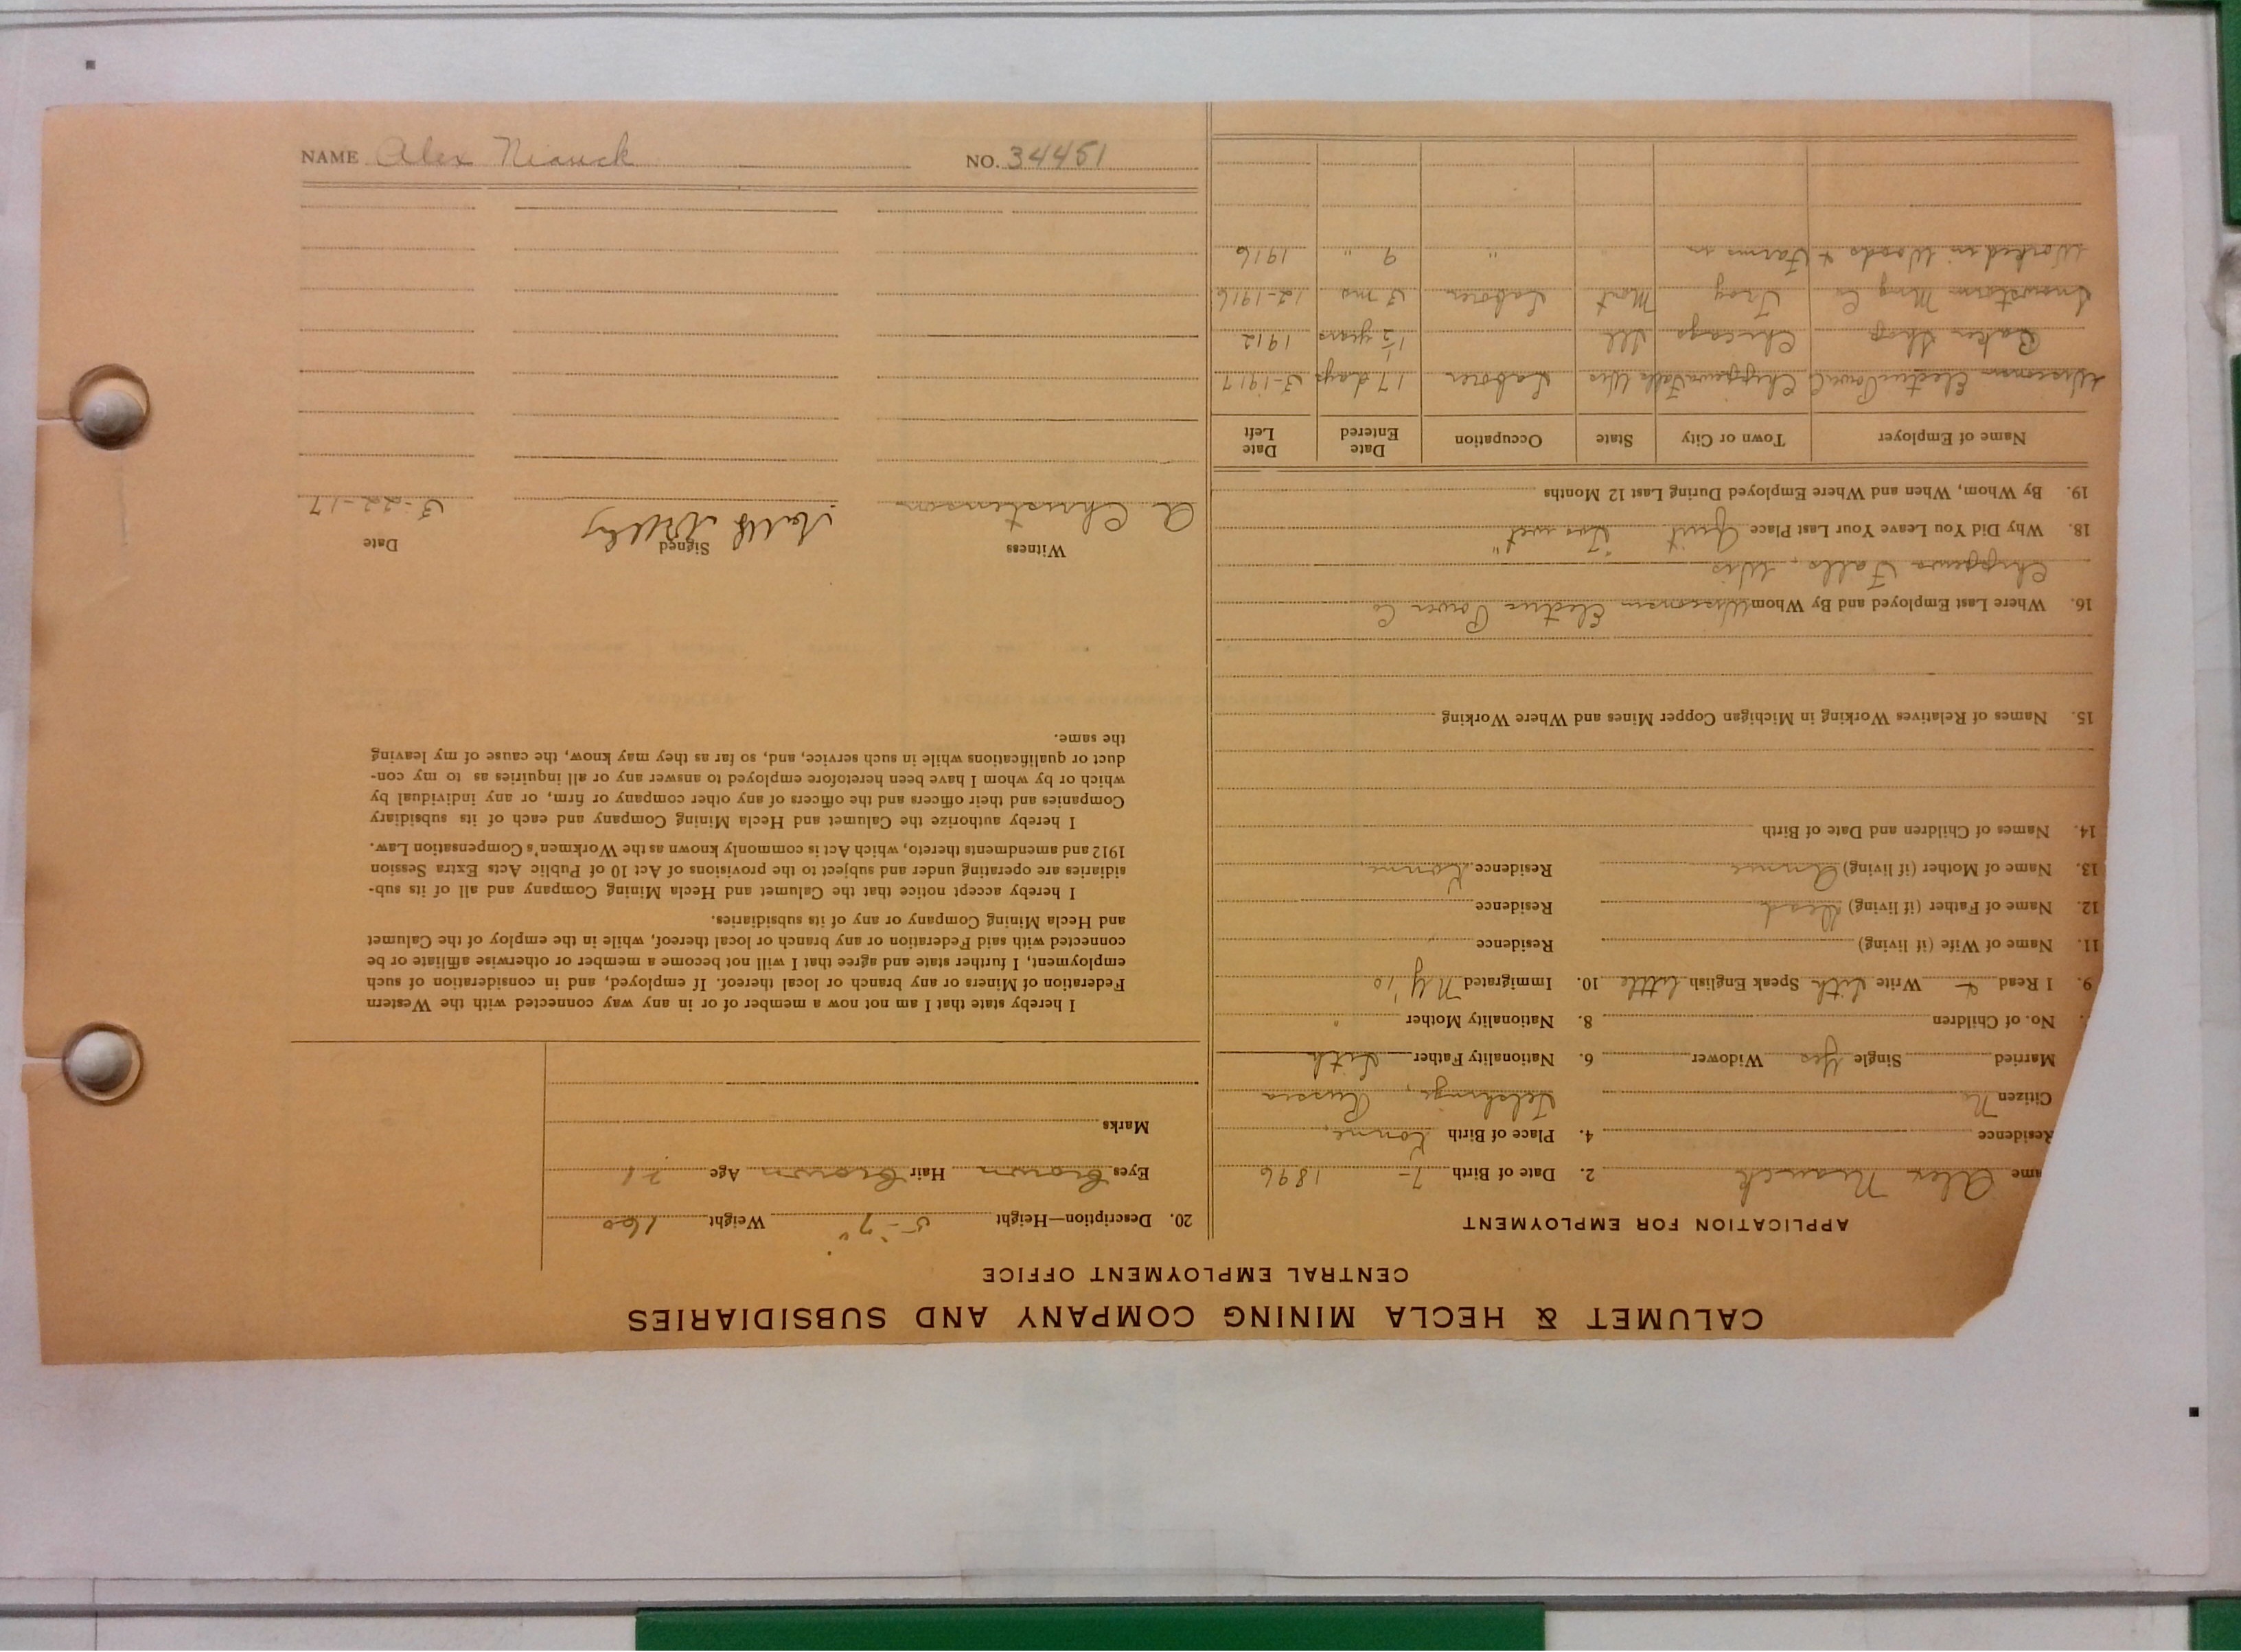 CALUMET & HECLA MINING COMPANY AND SUBSIDIARIES
CENTRAL EMPLOYMENT OFFICE
APPLICATION FOR EMPLOYMENT
ame Alex 2. Date of Birth 7- 1896
Residence 4. Place of Birth
Citizen No Russia
Married Single Yes Widower 6. Nationality Father Lith
No. of Children 8. Nationality Mother "
9. I Read & Write Lith Speak English little 10. Immigrated N Y '10
11. Name of Wife (if living) Residence
12. Name of Father (if living) Dead Residence
13. Name of Mother (if living) Annie Residence
14. Names of Children and Date of Birth
15. Names of Relatives Working in Michigan Copper Mines and Where Working
16. Where Last Employed and By Whom Wisconsin Electric Power Co
Chippewa Falls, Wis
18. Why Did You Leave Your Last Place Quit "Too wet"
19. By Whom, When and Where Employed During Last 12 Months
Name of Employer Town or City State Occupation Date Entered Date Left
Wisconsin Electric Power C Chippewa Falls Wis Laborer 17 days 3-1917
Baker Shop Chicago Ill 1 1/2 years 1912
Snowstorm Mng Co Troy Mont Laborer 3 mo 12-1916
Worked in Woods & Farms in " 9 " 1916
20. Description—Height 5-7" Weight 160
Eyes Brown Hair Brown Age 21
Marks
I hereby state that I am not now a member of or in any way connected with the Western
Federation of Miners or any branch or local thereof. If employed, and in consideration of such
employment, I further state and agree that I will not become a member or otherwise affiliate or be
connected with said Federation or any branch or local thereof, while in the employ of the Calumet
and Hecla Mining Company or any of its subsidiaries.
I hereby accept notice that the Calumet and Hecla Mining Company and all of its sub-
sidiaries are operating under and subject to the provisions of Act 10 of Public Acts Extra Session
1912 and amendments thereto, which Act is commonly known as the Workmen's Compensation Law.
I hereby authorize the Calumet and Hecla Mining Company and each of its subsidiary
Companies and their officers and the officers of any other company or firm, or any individual by
which or by whom I have been heretofore employed to answer any or all inquiries as to my con-
duct or qualifications while in such service, and, so far as they may know, the cause of my leaving
the same.
Witness Signed Date
A Christenson 3-22-17
NAME Alex NO. 34451